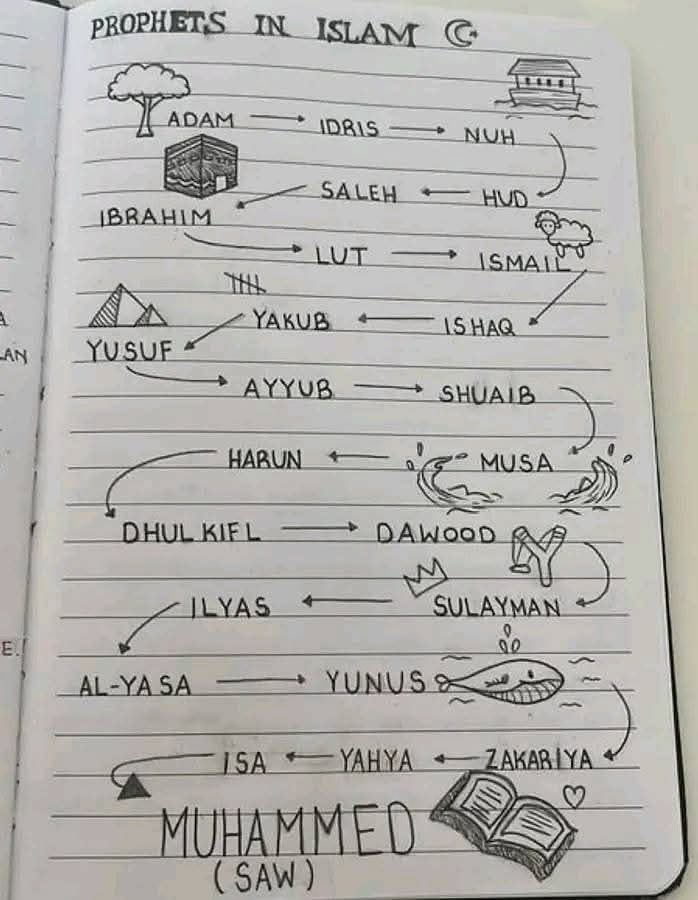 PROPHETS IN ISLAM
ADAM → IDRIS → NUH
SALEH ← HUD
IBRAHIM
LUT → ISMAIL
YAKUB ← ISHAQ
YUSUF
AYYUB → SHUAIB
HARUN ← MUSA
DHULKIFL → DAWOOD
ILYAS ← SULAYMAN
AL-YASA → YUNUS
ISA ← YAHYA ← ZAKARIYA
MUHAMMED
(SAW)